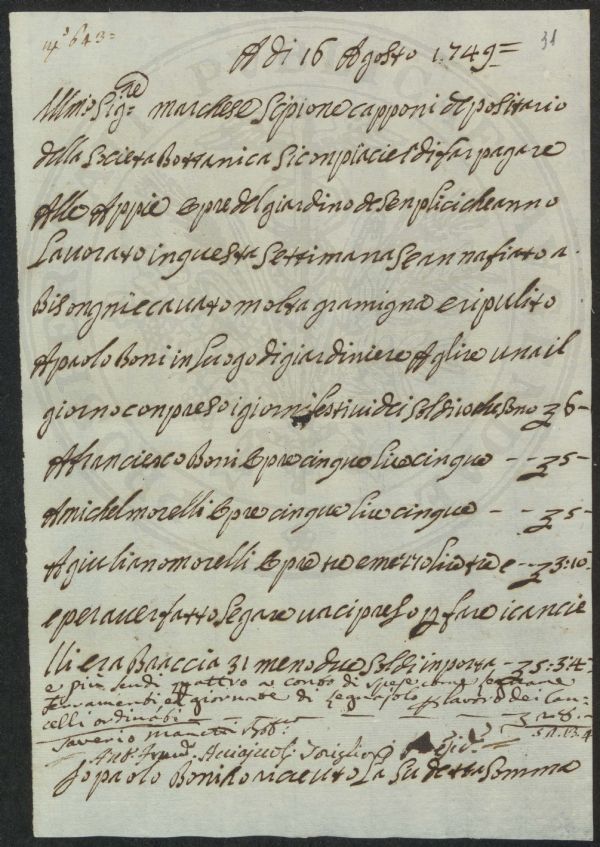 N.º 643 =
31
A di 16 Agosto 1749 =
Illmo Sigre marchese Scipione capponi depositario
della Societa Bottanica Si compiacie di far pagare
Alle Appie Opre del giardino de Senplici che anno
Lavorato in questa Settimana Se annafiato a
Bisongni e cavato molta gramigna e ripulito
A paolo Boni in Luogo di giardiniere A lire una il
giorno conpreso i giorni festivi dei Soldi che Sono £ 6 -
A franciesco Boni Opre cinque lire cinque - - £ 5 -
A michel morelli Opre cinque lire cinque - - £ 5 -
A giuliano morelli Opre tre e mezzo lire tre e - - £ 3:10 -
e per aver fatto Segare un cipreso p fare i cancie
lli era Braccia 31 meno due Soldi inporta - £ 5:3:4 -
e più scudi quattro a conto di spese come
ferramenti e giornate di legnaiolo p lavoro dei Can
celli ordinati - - - £ 28 -
Saverio Manetti £ 52.13.4
Ant. Franc. Acciajuoli
Io paolo Boni o riceuto La Su detta Somma